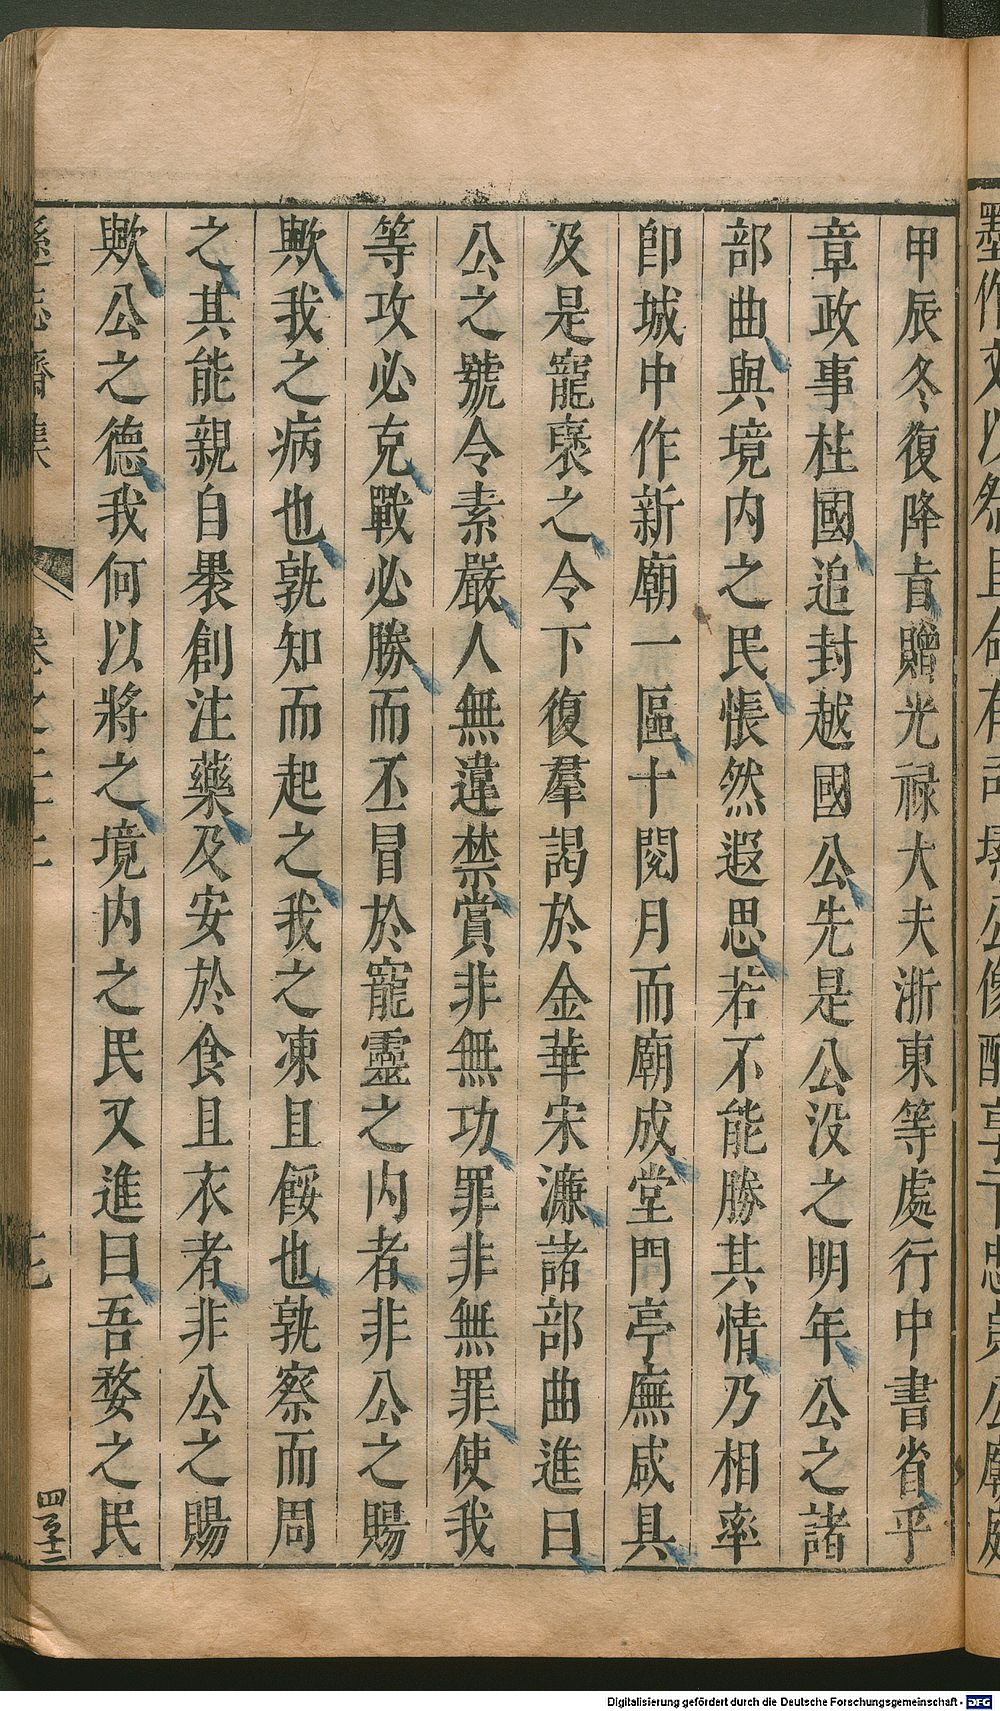 墨作文以祭且命有司塑公像配享于忠烈公廟庭
甲辰冬復降旨贈光祿大夫浙東等處行中書省平
章政事柱國追封越國公先是公没之明年公之諸
部曲與境内之民悵然遐思若不能勝其情乃相率
卽城中作新廟一區十閱月而廟成堂門亭廡咸具
及是寵褒之令下復羣謁於金華宋濂諸部曲進曰
公之號令素嚴人無違禁賞非無功罪非無罪使我
等攻必克戰必勝而丕冒於寵靈之内者非公之賜
歟我之病也孰知而起之我之凍且餒也孰察而周
之其能親自褁創注藥及安於食且衣者非公之賜
歟公之德我何以將之境内之民又進曰吾婺之民
遜志齋集
卷之二十二
四百十二
Digitalisierung gefördert durch die Deutsche Forschungsgemeinschaft - DFG